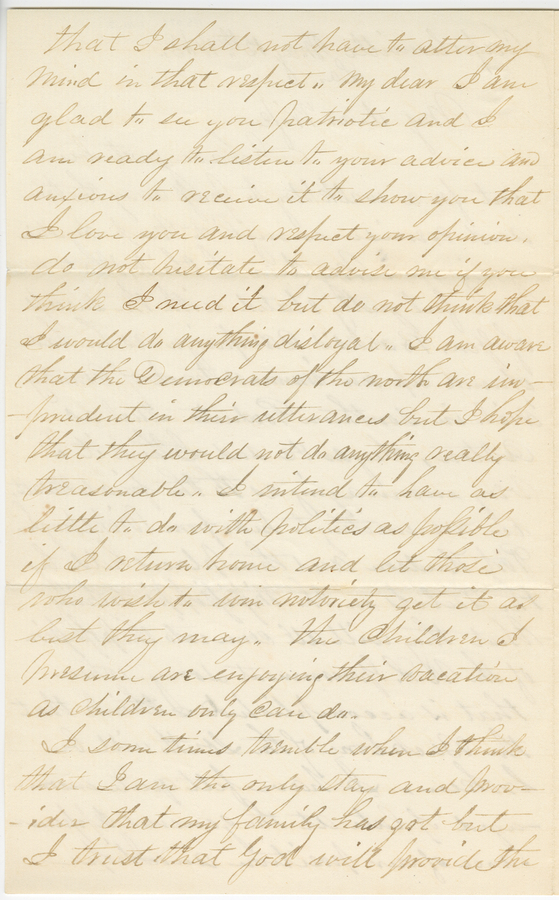 that I shall not have to alter my
mind in that respect.. My dear I am
glad to see you patriotic and I
am ready to listen to your advice and
anxious to receive it to show you that
I love you and respect your opinion.
do not hesitate to advise me if you
think I need it but do not think that
I would do anything disloyal.. I am aware
that the Democrats of the north are im-
-prudent in their utterances but I hope
that they would not do anything really
treasonable.. I intend to have as
little to do with politics as possible
if I return home and let those
who wish to win notoriety get it as
best they may.. The Children I
presume are enjoying their vacation
as children only can do..
I some times tremble when I think
that I am the only stay and prov-
-ider that my family has got but
I trust that God will provide the